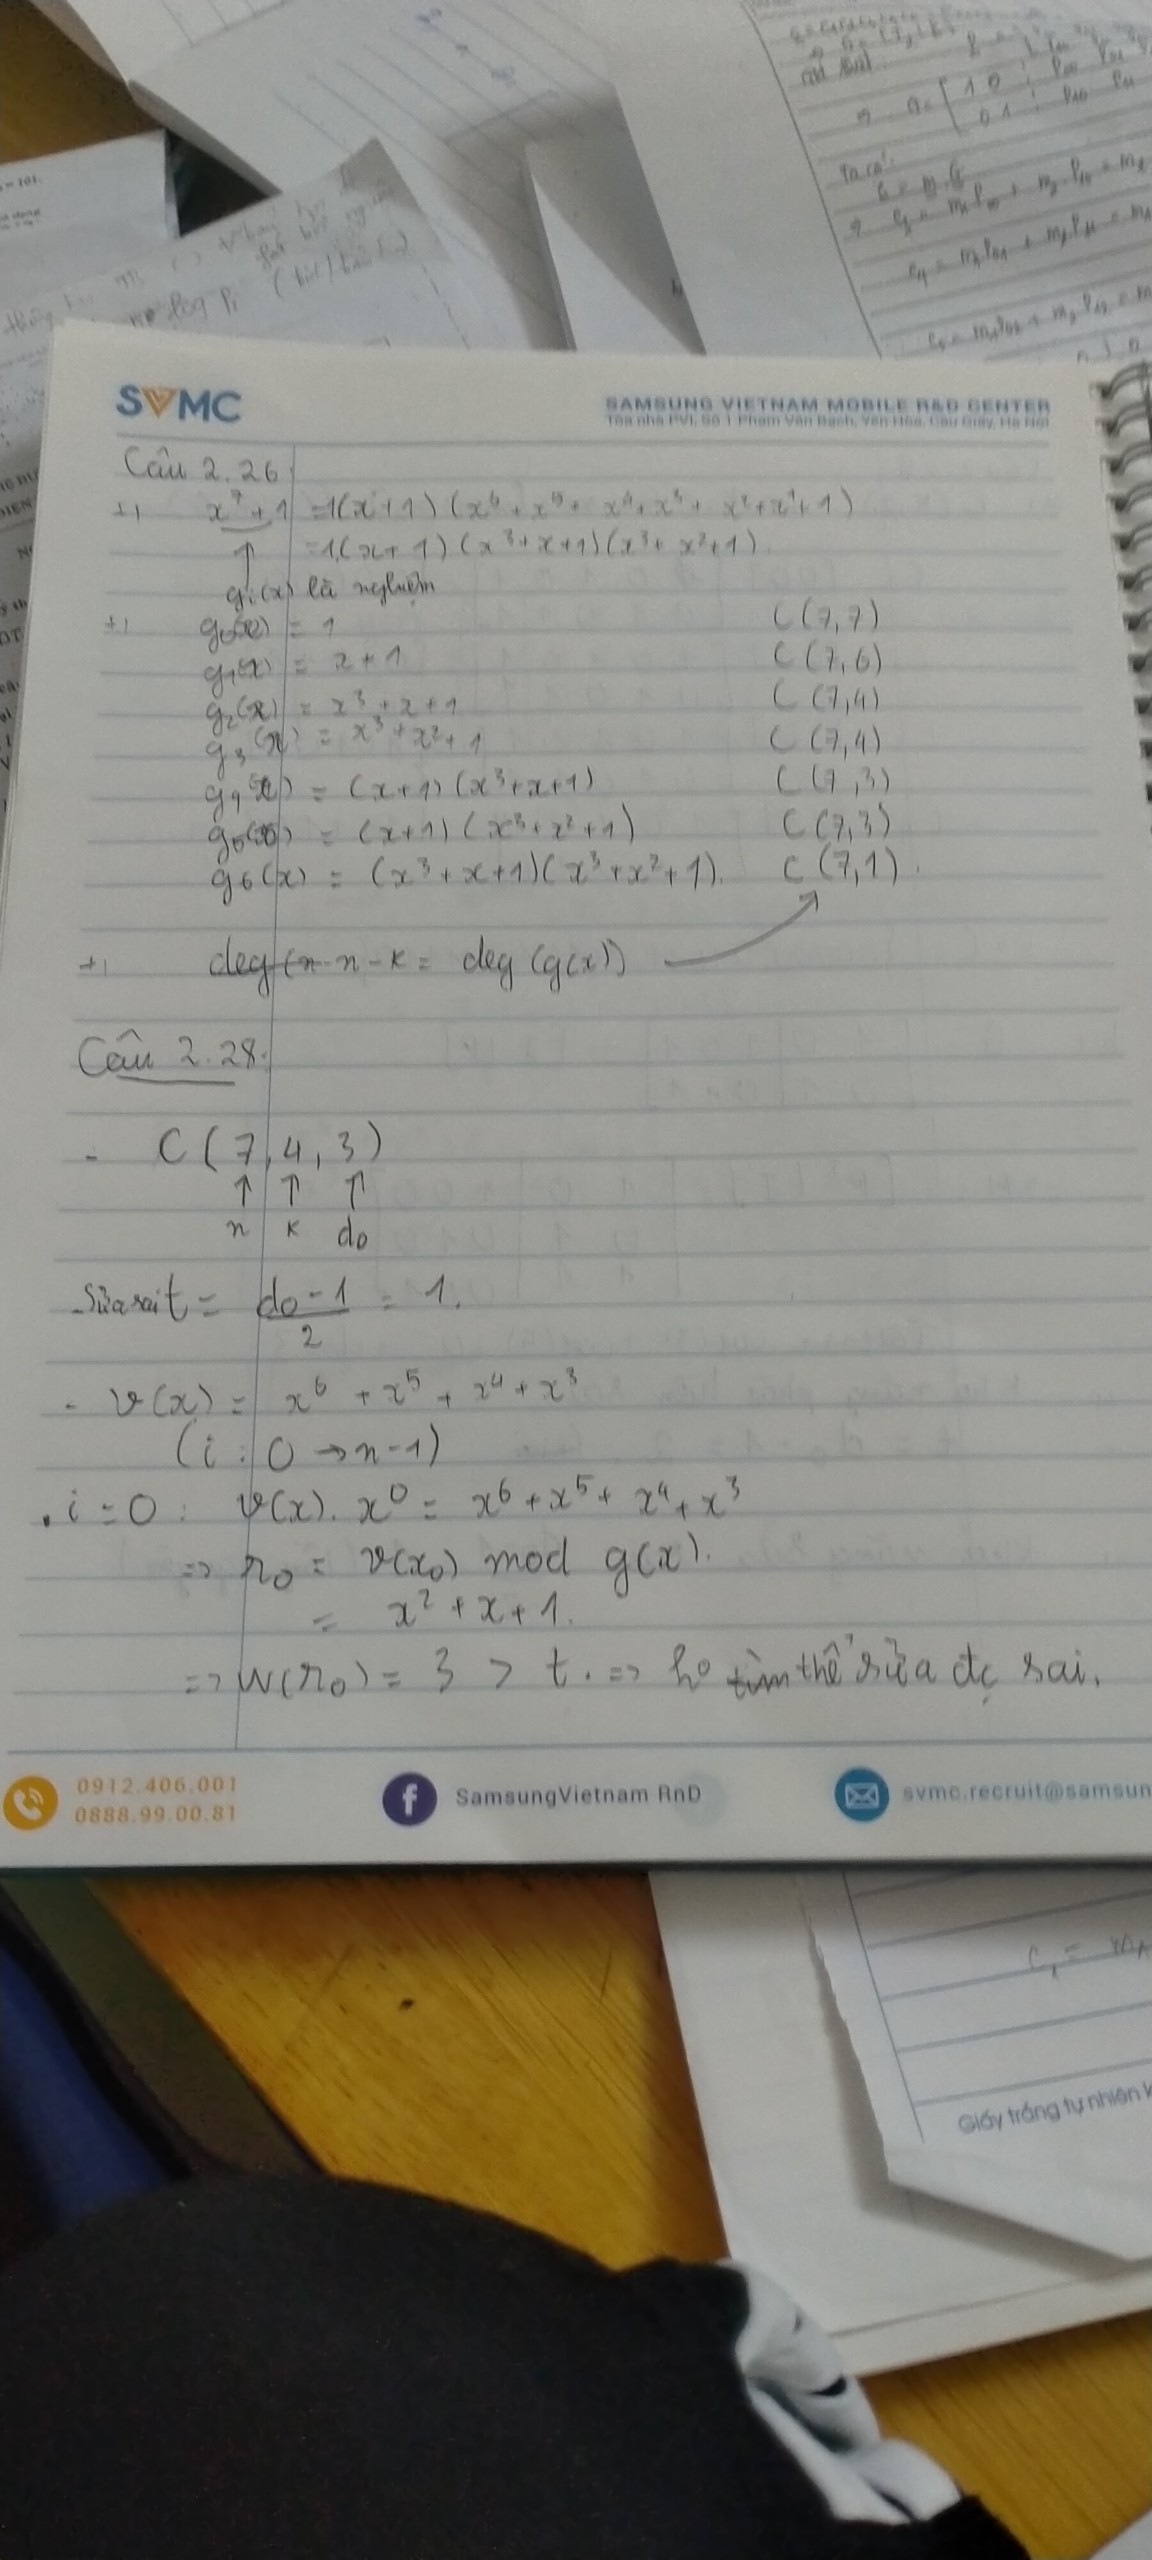 SVMC
SAMSUNG VIETNAM MOBILE R&D CENTER
Tòa nhà PVI, Số 1 Phạm Văn Bạch, Yên Hòa, Cầu Giấy, Hà Nội
Câu 2.26.
+, x⁷ + 1 = 1(x+1)(x⁶ + x⁵ + x⁴ + x³ + x² + x¹ + 1)
= 1.(x+1)(x³+x+1)(x³+x²+1).
↑
gᵢ(x) là nghiệm
+, g₀(x) = 1 C(7,7)
g₁(x) = x+1 C(7,6)
g₂(x) = x³+x+1 C(7,4)
g₃(x) = x³+x²+1 C(7,4)
g₄(x) = (x+1)(x³+x+1) C(7,3)
g₅(x) = (x+1)(x³+x²+1) C(7,3)
g₆(x) = (x³+x+1)(x³+x²+1). C(7,1).
+, n-k = deg(g(x))
Câu 2.28.
- C(7,4,3)
↑ ↑ ↑
n k d₀
- Sửa sai t = (d₀-1)/2 = 1.
- v(x) = x⁶ + x⁵ + x⁴ + x³
(i : 0 → n-1)
. i=0 : v(x). x⁰ = x⁶ + x⁵ + x⁴ + x³
=> r₀ = v(x₀) mod g(x).
= x² + x + 1.
=> W(r₀) = 3 > t. => thể sửa đc sai.
0912.406.001
0888.99.00.81
SamsungVietnam RnD
svmc.recruit@samsun
Giấy trắng tự nhiên